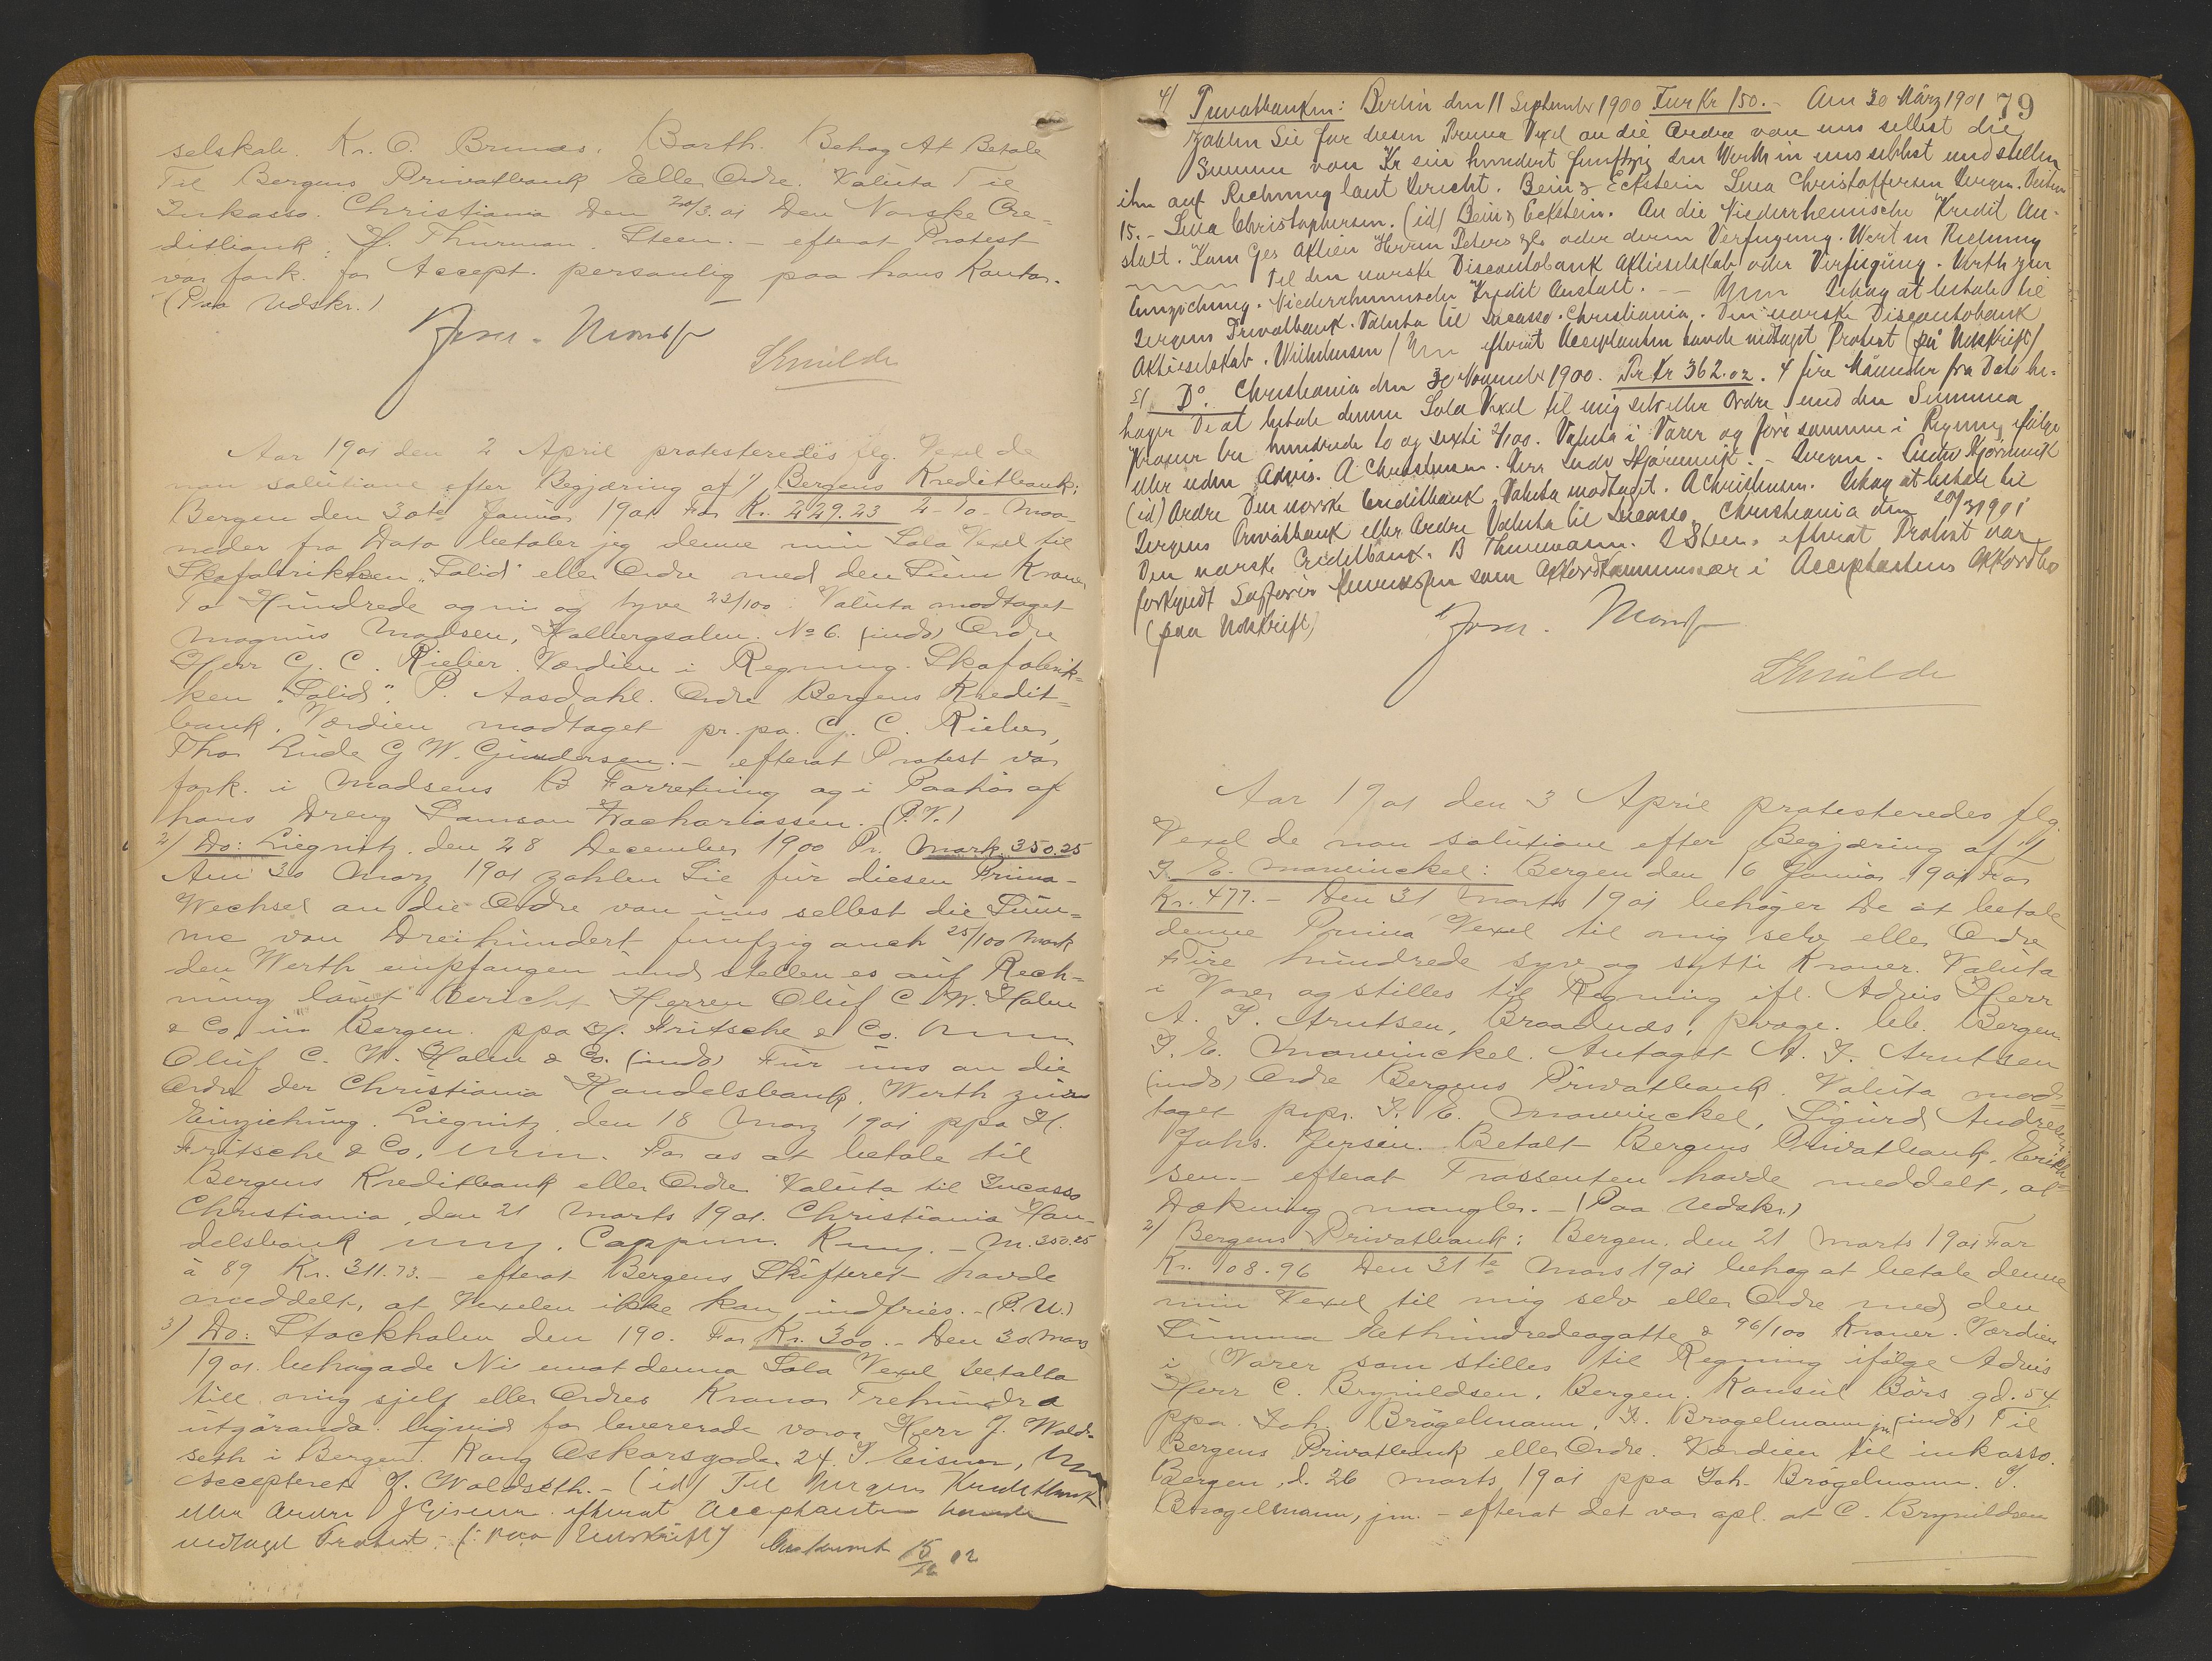 selskab. Kr. O. Brunæs. Barth. Behag At Betale
Til Bergens Privatbank Eller Ordre. Valuta Til
Inkasso. Christiania Den 20/3.01 Den Norske Cre-
ditbank. H. Thurman. Steen. - efterat Protest
var fork. for Accept. personlig paa hans Kontor.
(Paa Udskr.)
Aar 1901 den 2 April protesteredes flg. Vexel de
non salutione efter Begjæring af 1) Bergens Kreditbank:
Bergen den 30te Januar 1901 For Kr. 229.23 2 - To - Maa-
neder fra Dato betaler jeg denne min Sola Vexel til
Skofabrikken "Solid" eller Ordre med den Sum Kroner
To Hundrede og ni og tyve 23/100. Valuta modtaget
Magnus Madsen, Holbergsalm. No 6. (indo) Ordre
Herr G. C. Rieber. Værdien i Regning. Skofabrik-
ken "Solid". P. Aasdahl. Ordre Bergens Kredit-
bank. Værdien modtaget pr. pa. G. C. Rieber,
Thor Lude G W. Gundersen. - efterat Protest var
fork. i Madsens B Forretning og i Paahør af
hans Dreng Samson Zachariassen. (P.V.)
2) Do: Liegnitz den 28 December 1900 Pr. Mark 350.25
Am 30 Marz 1901 zahlen Sie für diesen Prima-
Wechsel an die Ordre von uns selbst die Sum-
me von Dreihundert funfzig auch 25/100 Mark
den Werth empfangen und stellen es auf Rech-
nung laut Bericht Herren Oluf C. W. Holm
& Co. in Bergen. ppa H. Fritsche & Co.
Oluf C. W. Holm & Co. (indo) Für uns an die
Ordre der Christiania Handelsbank. Werth zum
Einziehung. Liegnitz, den 18 Marz 1901 ppa H.
Fritsche & Co. For os at betale til
Bergens Kreditbank eller Ordre Valuta til Incasso
Christiania, den 21 Marts 1901. Christiania Han-
delsbank Cappum. - M. 350.25
à 89 Kr. 311.73. - efterat Bergens Skifteret havde
meddelt, at Vexelen ikke kan indfries. - (P.U.)
3) Do: Stockholm den 190. For Kr. 300. - Den 30 Mars
1901. behagade Ni emot denna Sola Vexel betalta
till mig sjelf eller Ordres Kronor Trehundra
utgöranda liqvid for levererade varor Herr J. Wold-
seth i Bergen. Kong Oskarsgade 24. I Eismer,
Accepteret J. Woldseth. - (id) Til Bergens Kreditbank
eller Ordre J Eismer efterat Acceptanten havde
vedtaget Protest. - (: paa Udskrift)
79
4/ Privatbanken: Berlin den 11 September 1900 Fur Kr 150. - Am 30 März 1901
Zahlen Sie fur diesen Prima Vexel an die Ordre von uns selbst die
Summe von Kr ein hundert funftzig den Werth in uns selbst und stellen
ihn auf Rechnung laut Bericht. Bein & Eckstein Lina Christoffersen Bergen.
15. - Lina Christophersen. (id) Bein & Eckstein. An die Niederrheinische Kredit An-
stalt. Kom Ges Aktien Herrn Peters & Co oder deren Verfugung. Wert in Rechnung
Til den norske Discontobank Aktieselskab oder Verfugung. Werth zur
Einziehung. Niederrheinische Kredit Anstalt. - Behag at betale til
Bergens Privatbank. Valuta til Incasso. Christiania. Den norske Discontobank
Aktieselskab. Wilhelmsen / efterat Acceptanten havde vedtaget Protest (på Udskrift)
5/ Do. Christiania den 30 November 1900. Pr Kr 362.02. 4 fire Maaneder fra Dato be-
hager De at betale denne Sola Vexel til mig selv eller Ordre med den Summa
Kroner tre hundrede to og sexti 2/100. Valuta i Varer og føre samme i Regning ifølge
eller uden Advis. A Christensen. Herr Ludv Hjörnevik. - Bergen. - Ludv Hjörnevik
(id) Ordre Den norske Creditbank. Valuta modtaget. A Christensen. Behag at betale til
Bergens Privatbank eller Ordre Valuta til Incasso. Christiania den 20/3 1901
Den norske Creditbank. B Thurmann. Steen. efterat Protest var
forkyndt Sagfører som Akkordkommissær i Acceptantens Akkordbo
(paa Udskrift)
Aar 1901 den 3 April protesteredes flg.
Vexel de non salutione efter Begjæring af 1/
J. E. Mowinckel: Bergen den 16 Januar 1901 For
Kr. 477. - Den 31 Marts 1901 behager De at betale
denne Prima Vexel til mig selv eller Ordre
Fire hundrede syv og sytti Kroner. Valuta
i Varer og stilles til Regning ifl. Advis Herr
A. J. Arntsen, Broadnæs, Bergen
J. E. Mowinckel. Antaget A. J. Arntsen
(indo) Ordre Bergens Privatbank. Valuta mod-
taget prpr. J. E. Mowinckel, Sigurd
Johs. Jersin. Betalt Bergens Privatbank. Erik-
sen. - efterat Trassenten havde meddelt, at
Dækning mangler. - (Paa Udskr.)
2) Bergens Privatbank: Bergen. den 21 Marts 1901 For
Kr. 108.96 Den 31te Mars 1901 behag at betale denne
min Vexel til mig selv eller Ordre med den
Summa Ethundredeogotte & 96/100 Kroner. Værdien
i Varer som stilles til Regning ifølge Advis
Herr C. Brynildsen. Bergen. Konsul Børs gd. 54
ppa. Joh. Brögelmann, J. Brogelmann jn (indo) Til
Bergens Privatbank eller Ordre. Værdien til inkasso.
Bergen, d. 26 Marts 1901 ppa Joh. Brögelmann. J.
Brogelmann, jn. - efterat det var opl. at C. Brynildsen